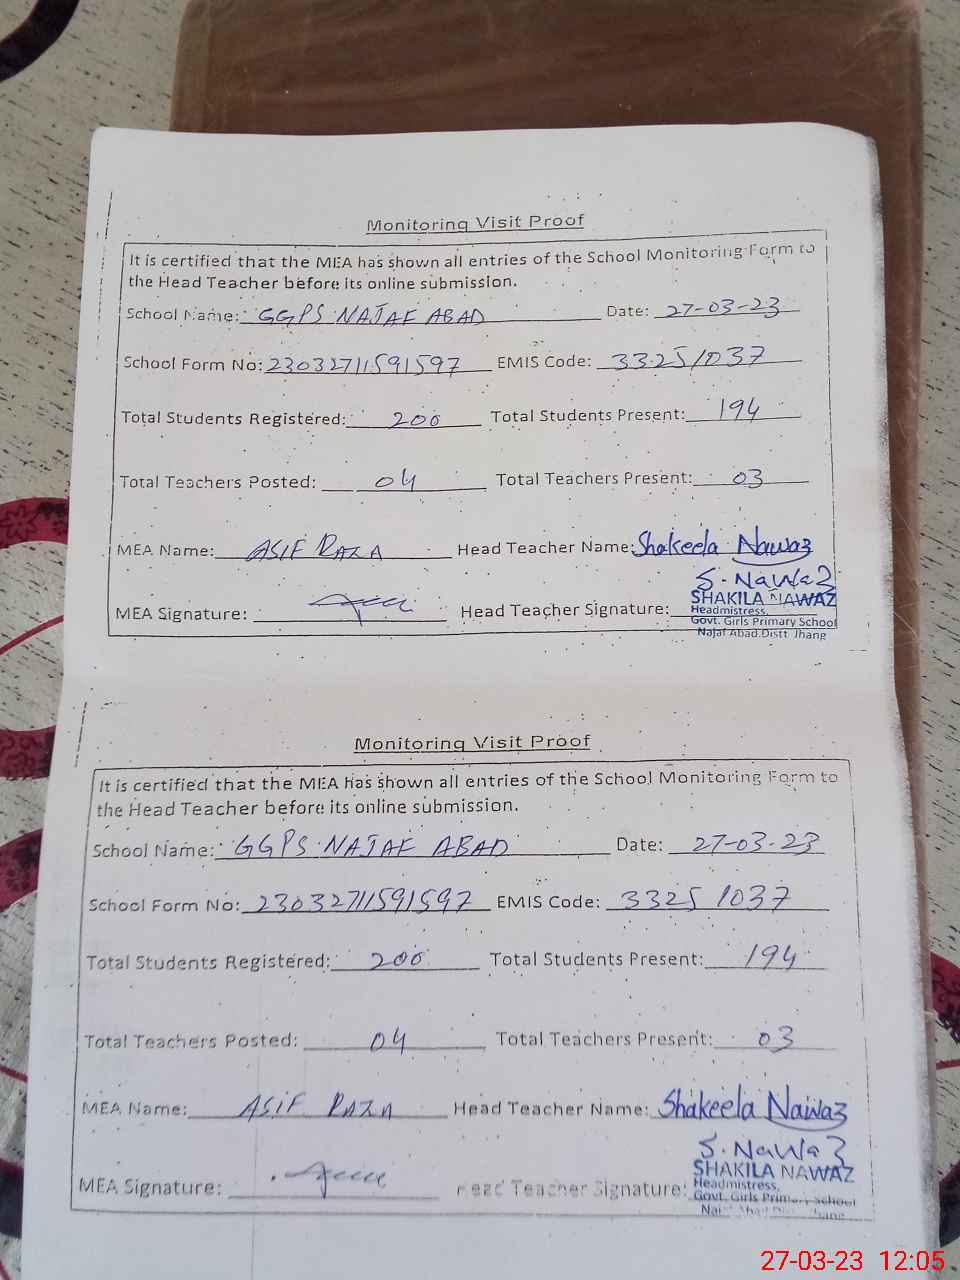 Monitoring Visit Proof
It is certified that the MEA has shown all entries of the School Monitoring Form to
the Head Teacher before its online submission.
School Name: GGPS NAJAF ABAD Date: 27-03-23
School Form No: 23032711591597 EMIS Code: 33251037
Total Students Registered: 200 Total Students Present: 194
Total Teachers Posted: 04 Total Teachers Present: 03
MEA Name: ASIF RAZA Head Teacher Name: Shakeela Nawaz
S. Nawaz
MEA Signature: Head Teacher Signature: SHAKILA NAWAZ
Headmistress,
Govt. Girls Primary School
Najaf Abad Distt Jhang
Monitoring Visit Proof
It is certified that the MEA has shown all entries of the School Monitoring Form to
the Head Teacher before its online submission.
School Name: GGPS NAJAF ABAD Date: 27-03-23
School Form No: 23032711591597 EMIS Code: 33251037
Total Students Registered: 200 Total Students Present: 194
Total Teachers Posted: 04 Total Teachers Present: 03
MEA Name: ASIF RAZA Head Teacher Name: Shakeela Nawaz
S. Nawaz
MEA Signature: Head Teacher Signature: SHAKILA NAWAZ
Headmistress,
Govt. Girls Primary School
27-03-23 12:05